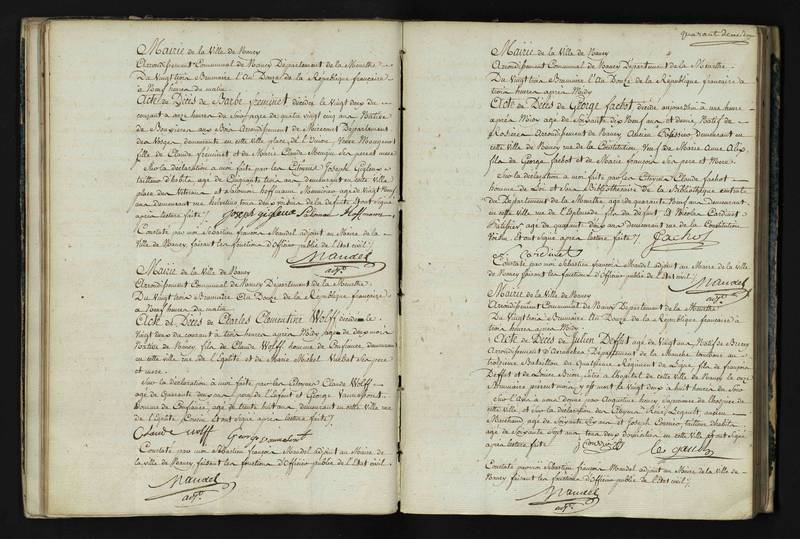 Mairie de la Ville de Nancy
Arrondissement Communal de Nancy Département de la Meurthe
Du Vingt trois Brumaire l'An Douze de la République française
à Neuf heures du matin
Acte de Décès de Barbe feminet décédée le Vingt deux du
courant à onze heures du Soir, agée de quatre vingt cinq ans Native
de
Arrondissement de Mirecourt Département
des Vosges demeurante en cette Ville place de l'
fille de Claude feminet et de Marie Claude Mengin ses pere et mere
Sur la déclaration à moi faite par les Citoyens Joseph
tailleur d'habits agé de Cinquante trois ans demeurant en cette Ville
place des et Salomon hoffmann agé de Vingt Neuf
ans demeurant rue deux voisins de la defunte et ont Signé
après lecture faite
Salomon Hoffmann
Constaté par moi Sébastien françois Mandel adjoint au Maire de la
Ville de Nancy, faisant les fonctions d'Officier public de l'Etat civil
Mandel
adj.
Mairie de la Ville de Nancy
Arrondissement Communal de Nancy Département de la Meurthe
Du Vingt trois Brumaire An Douze de la République française
à Neuf heures du matin
Acte de Décès de Charles Clementine Wolff décédé le
Vingt deux du courant à trois heures après Midy agé de deux mois
Native de Nancy, fils de Claude Wolff homme de Confiance, demeurant
en cette ville rue de l'Egalité et de Marie Michel ses pere
et mere
Sur la déclaration à moi faite par les Citoyens Claude Wolff
agé de Quarante deux ans pere de l'enfant et George
homme de Confiance, agé de trente huit ans demeurant en cette Ville rue
de l'Egalité Cousin et ont Signé après lecture faite
Claude Wolff George
Constaté par moi Sébastien françois Mandel adjoint au Maire de
la ville de Nancy faisant les fonctions d'Officier public de l'Etat civil
Mandel
adj.
quarant deuxieme
Mairie de la Ville de Nancy
Arrondissement Communal de Nancy Département de la Meurthe
Du Vingt trois Brumaire l'An Douze de la République française à
trois heures après Midy
Acte de Décès de George fachot décédé aujourd'hui à une heure
après Midy agé de Soixante dix Neuf ans et demi, Natif de
Rosieres Arrondissement de Nancy, Ancien demeurant en
cette Ville de Nancy rue de la Constitution, Veuf de Marie Anne
fils de George fachot et de Marie françois ses pere et Mere
Sur la déclaration à moi faite par les Citoyens Claude fachot
homme de Loi et Sous Bibliothécaire de la Bibliothèque centrale
du Département de la Meurthe, agé de quarante Neuf ans Demeurant
en cette ville rue de l'Esplanade fils du défunt et Nicolas Cordinet
agé de quarante deux ans demeurant rue de la Constitution
Voisin, et ont Signé après lecture faite
fachot
Cordinet
Constaté par moi Sébastien françois Mandel adjoint au Maire de la Ville
de Nancy faisant les fonctions d'Officier public de l'Etat civil
Mandel
adj.
Mairie de la Ville de Nancy
Arrondissement Communal de Nancy Département de la Meurthe
Du Vingt trois Brumaire l'An Douze de la République française à
trois heures après Midy
Acte de Décès de Julien Defflet agé de Vingt ans Natif de
Arrondissement d'Avranches Département de la Manche tambour au
troisieme Bataillon du Quatrieme Regiment de Ligne fils de françois
Defflet et de Louise entré à l'hopital de cette Ville de Nancy le onze
Brumaire présent mois, y est mort le Vingt deux à huit heures du Soir
Sur l'avis à moi donné par Augustine henry de l'hospice de
cette Ville, et sur la déclaration des Citoyens ancien
Marchand agé de Soixante Six ans et Joseph tailleur d'habits
agé de Soixante Sept ans tous deux domiciliés en cette Ville et ont Signé
après lecture faite
Constaté par moi Sébastien françois Mandel adjoint au Maire de la Ville de
Nancy faisant les fonctions d'Officier public de l'Etat civil
Mandel
adj.